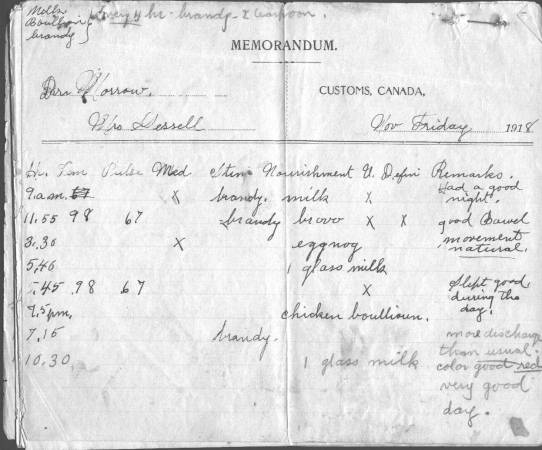 Milk
Boullion
brandy
every 4 hr - brandy - teaspoon.
MEMORANDUM.
Dr. Morrow.
CUSTOMS, CANADA,
Mrs Gessell
Nov Friday 1918
Hr. Tem Pulse Med Stim Nourishment U. Defni Remarks.
9.a.m. X brandy. milk X Had a good night.
11.55 98 67 brandy bravo X X good Bawel
3.30 X eggnog movement natural.
5.40 1 glass milk
.45 98 67 X Slept good during the day.
9.5pm. chicken boullioun.
7.15 brandy. more discharge than usual.
10.30 1 glass milk color good red
very good
day.